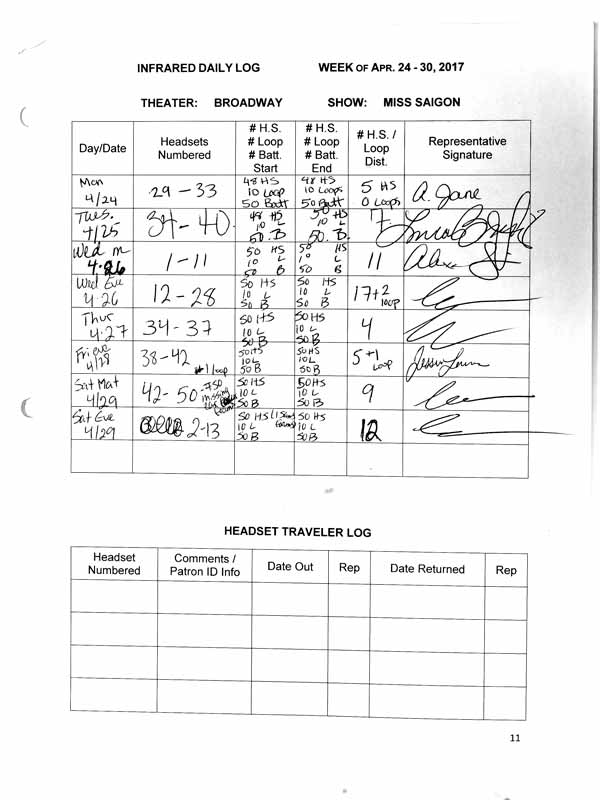 INFRARED DAILY LOG WEEK OF APR. 24 - 30, 2017
THEATER: BROADWAY SHOW: MISS SAIGON
Day/Date
Headsets
Numbered
# H.S.
# Loop
# Batt.
Start
# H.S.
# Loop
# Batt.
End
# H.S. /
Loop
Dist.
Representative
Signature
Mon
4/24
29 - 33
48 HS
10 Loop
50 Batt
48 HS
10 Loops
50 Batt
5 HS
0 Loops
A. Jane
Tues.
4/25
34 - 40
48 HS
10 L
50 B
50 HS
10 L
50 B.
7
Wed m
4.26
1 - 11
50 HS
10 L
50 B
50 HS
10 L
50 B
11
Wed Eve
4.26
12 - 28
50 HS
10 L
50 B
50 HS
10 L
50 B
17+2
loop
Thur
4.27
34 - 37
50 HS
10 L
50 B
50 HS
10 L
50 B
4
Fri eve
4/28
38 - 42
#1 loop
50 HS
10 L
50 B
50 HS
10 L
50 B
5+1
loop
Sat Mat
4/29
42 - 50
missing
50 HS
10 L
50 B
50 HS
10 L
50 B
9
Sat Eve
4/29
2-13
50 HS
10 L
50 B
50 HS
10 L
50 B
12
HEADSET TRAVELER LOG
Headset
Numbered
Comments /
Patron ID Info
Date Out
Rep
Date Returned
Rep
11